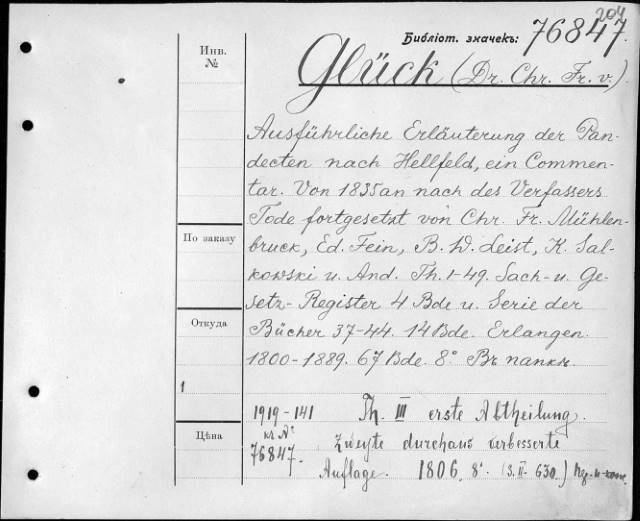 204
Библіот. значекъ: 76847.
Инв.
№
Glück (Dr. Chr. Fr. v.)
Ausführliche Erläuterung der Pan-
decten nach Hellfeld, ein Commen-
tar. Von 1835 an nach des Verfassers
Tode fortgesetzt von Chr. Fr. Mühlen-
bruck, Ed. Fein, B. W. Leist, K. Sal-
kowski u. And. Th. 1-49. Sach- u. Ge-
setz- Register 4 Bde u. Serie der
Bücher 37-44. 14 Bde. Erlangen.
1800-1889. 67 Bde. 8° Въ папкѣ.
По заказу
Откуда
1
Цѣна
1919-141 Th. III erste Abtheilung.
къ № 76847. Zweyte durchaus verbesserte
Auflage. 1806. 8°. (S. II- 630.)